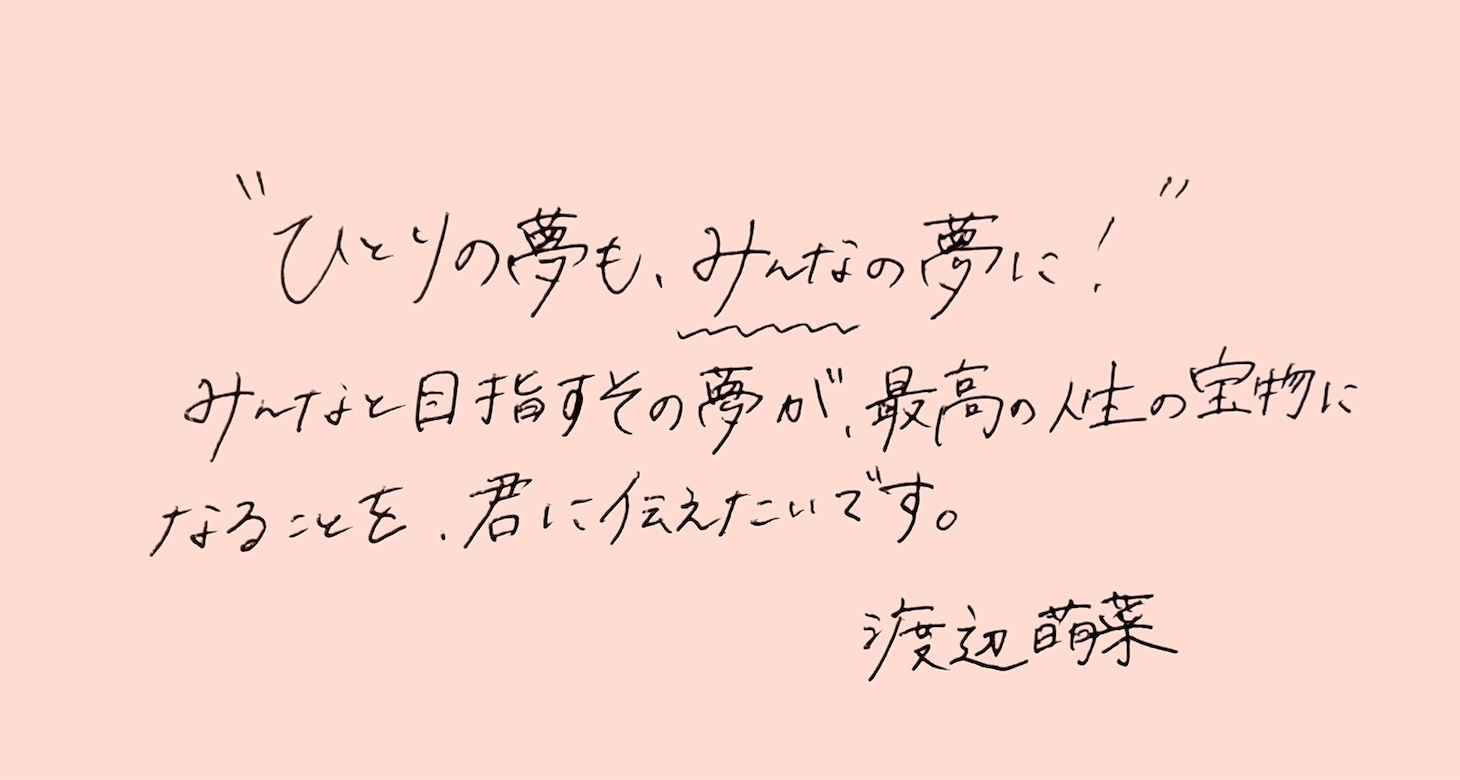 "ひとりの夢も、みんなの夢に！"
みんなと目指すその夢が、最高の人生の宝物に
なることを、君に伝えたいです。
渡辺萌菜